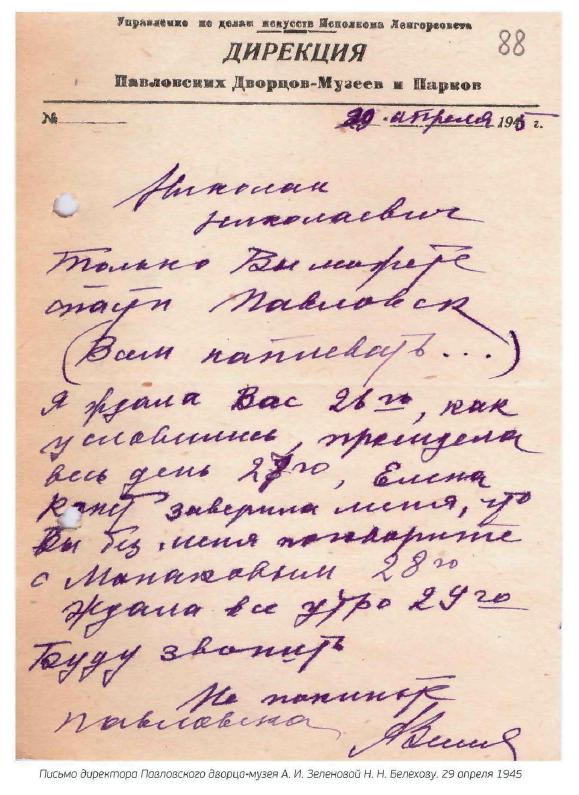 Управление по делам искусств Исполкома Ленгорсовета
88
ДИРЕКЦИЯ
Павловских Дворцов-Музеев и Парков
№
29 апреля 1945 г.
Николай
Николаевич
Только Вы можете
Павловск
(Вам наплевать...)
Я ждала Вас 26го, как
условились, просидела
весь день 27го, Елена
заверила меня, что
Вы без меня поговорите
с Монаховым 28го
Ждала все утро 29го
Буду звонить
Не покиньте
Павловска
Письмо директора Павловского дворца-музея А. И. Зеленовой Н. Н. Белехову. 29 апреля 1945